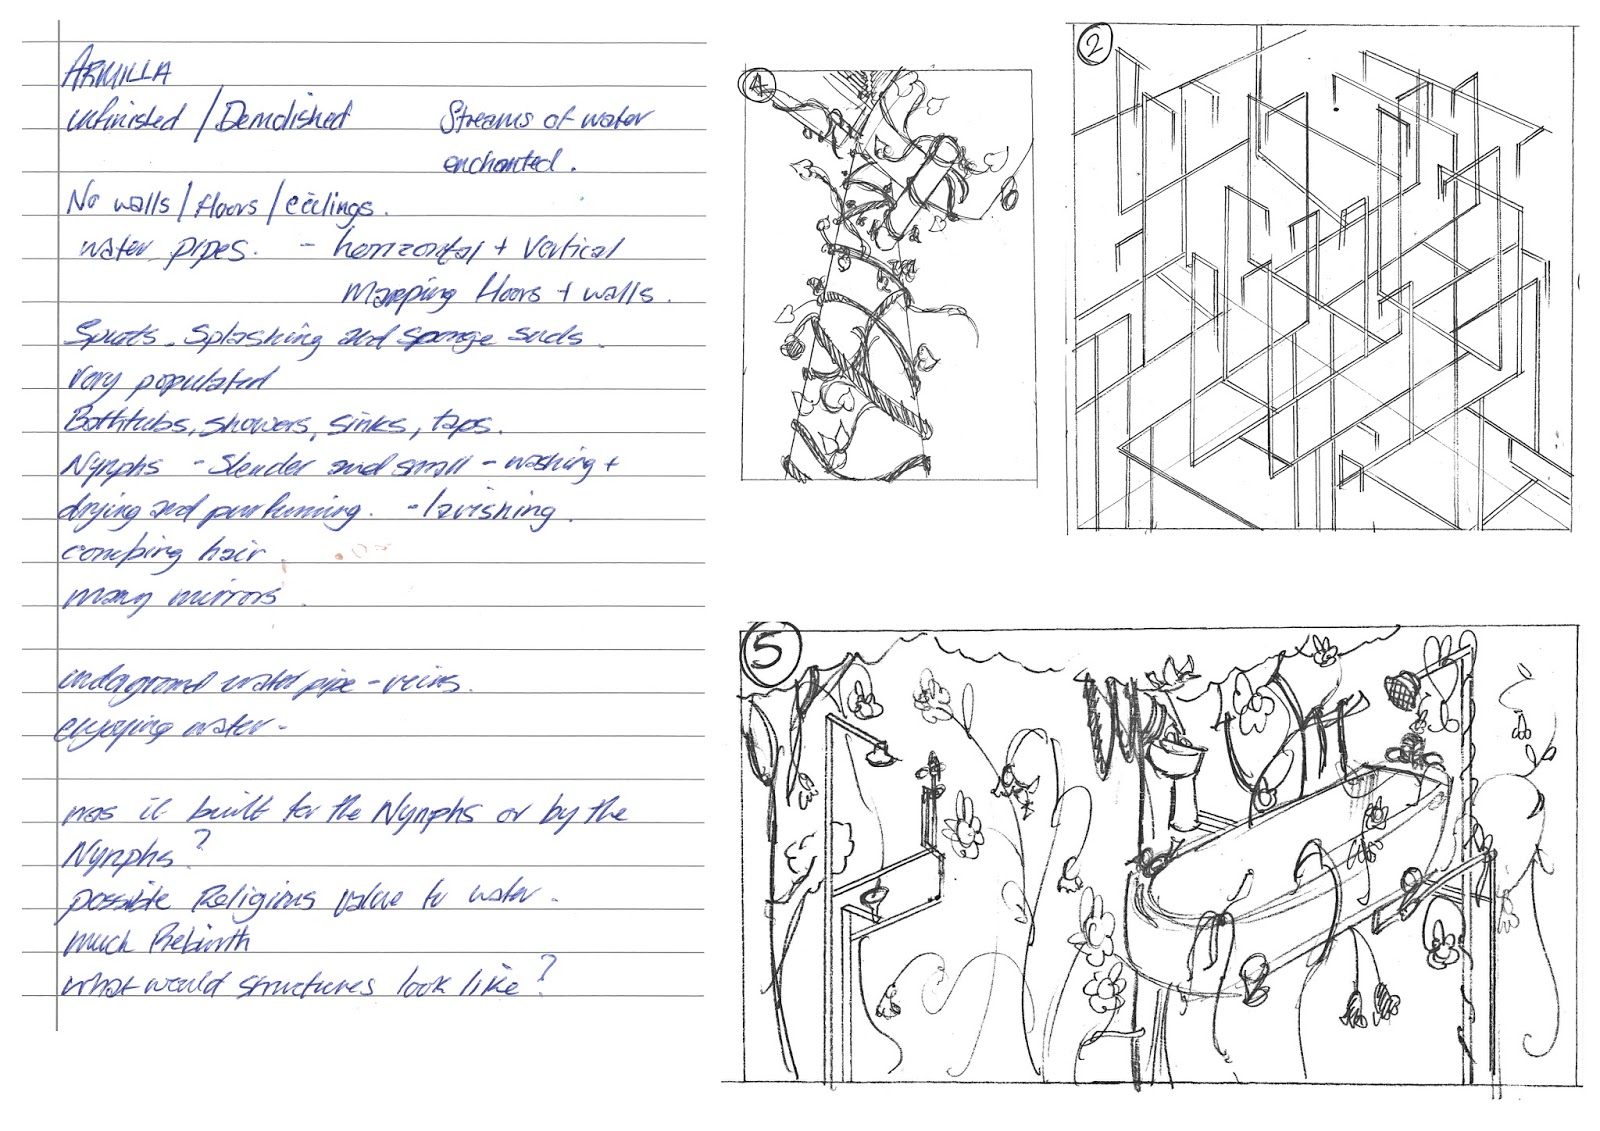 ARMILLA
unfinished / Demolished
Streams of water
enchanted.
No walls / floors / ceilings.
water pipes. - horizontal + vertical
Mapping floors + walls.
Spurts. Splashing and sponge suds.
very populated
Bathtubs, showers, sinks, taps.
Nymphs - Slender and small - washing +
drying and perfuming. - lavishing.
combing hair.
many mirrors.
undaground water pipe - veins.
enjoying water -
was it built for the Nymphs or by the
Nymphs?
possible Religious value to water.
much Rebirth
what would structures look like?
4
2
5